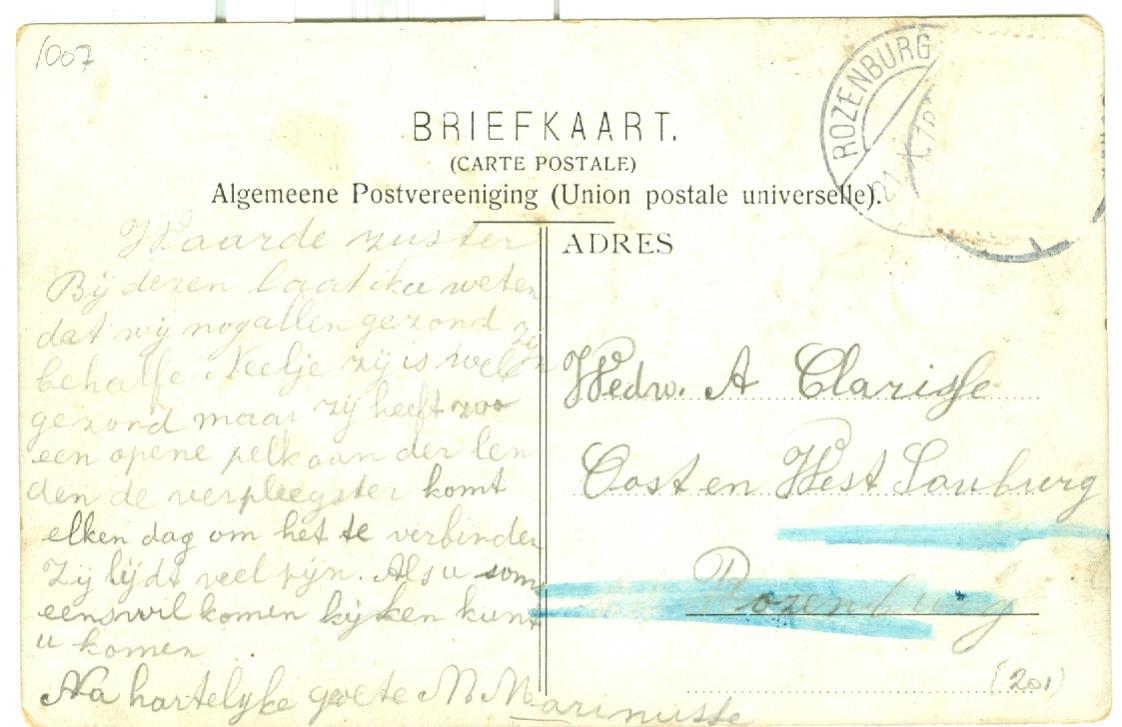 1007
ROZENBURG
BRIEFKAART.
(CARTE POSTALE)
Algemeene Postvereeniging (Union postale universelle).
Waarde zuster
Bij dezen laat iku weten
dat wij nog allen gezond zijn
behalfe Neelje zij is wel
gezond maar zij heeft zoo
een opene pelk aan der len
den de verpleegster komt
elken dag om het te verbinden
Zij lijdt veel pijn. Als u som
eens wil komen kijken kunt
u komen
Na hartelyke groete M M arinusse
ADRES
Wedw. A Clarisse
Oost en West Souburg
Rozenburg
(201)